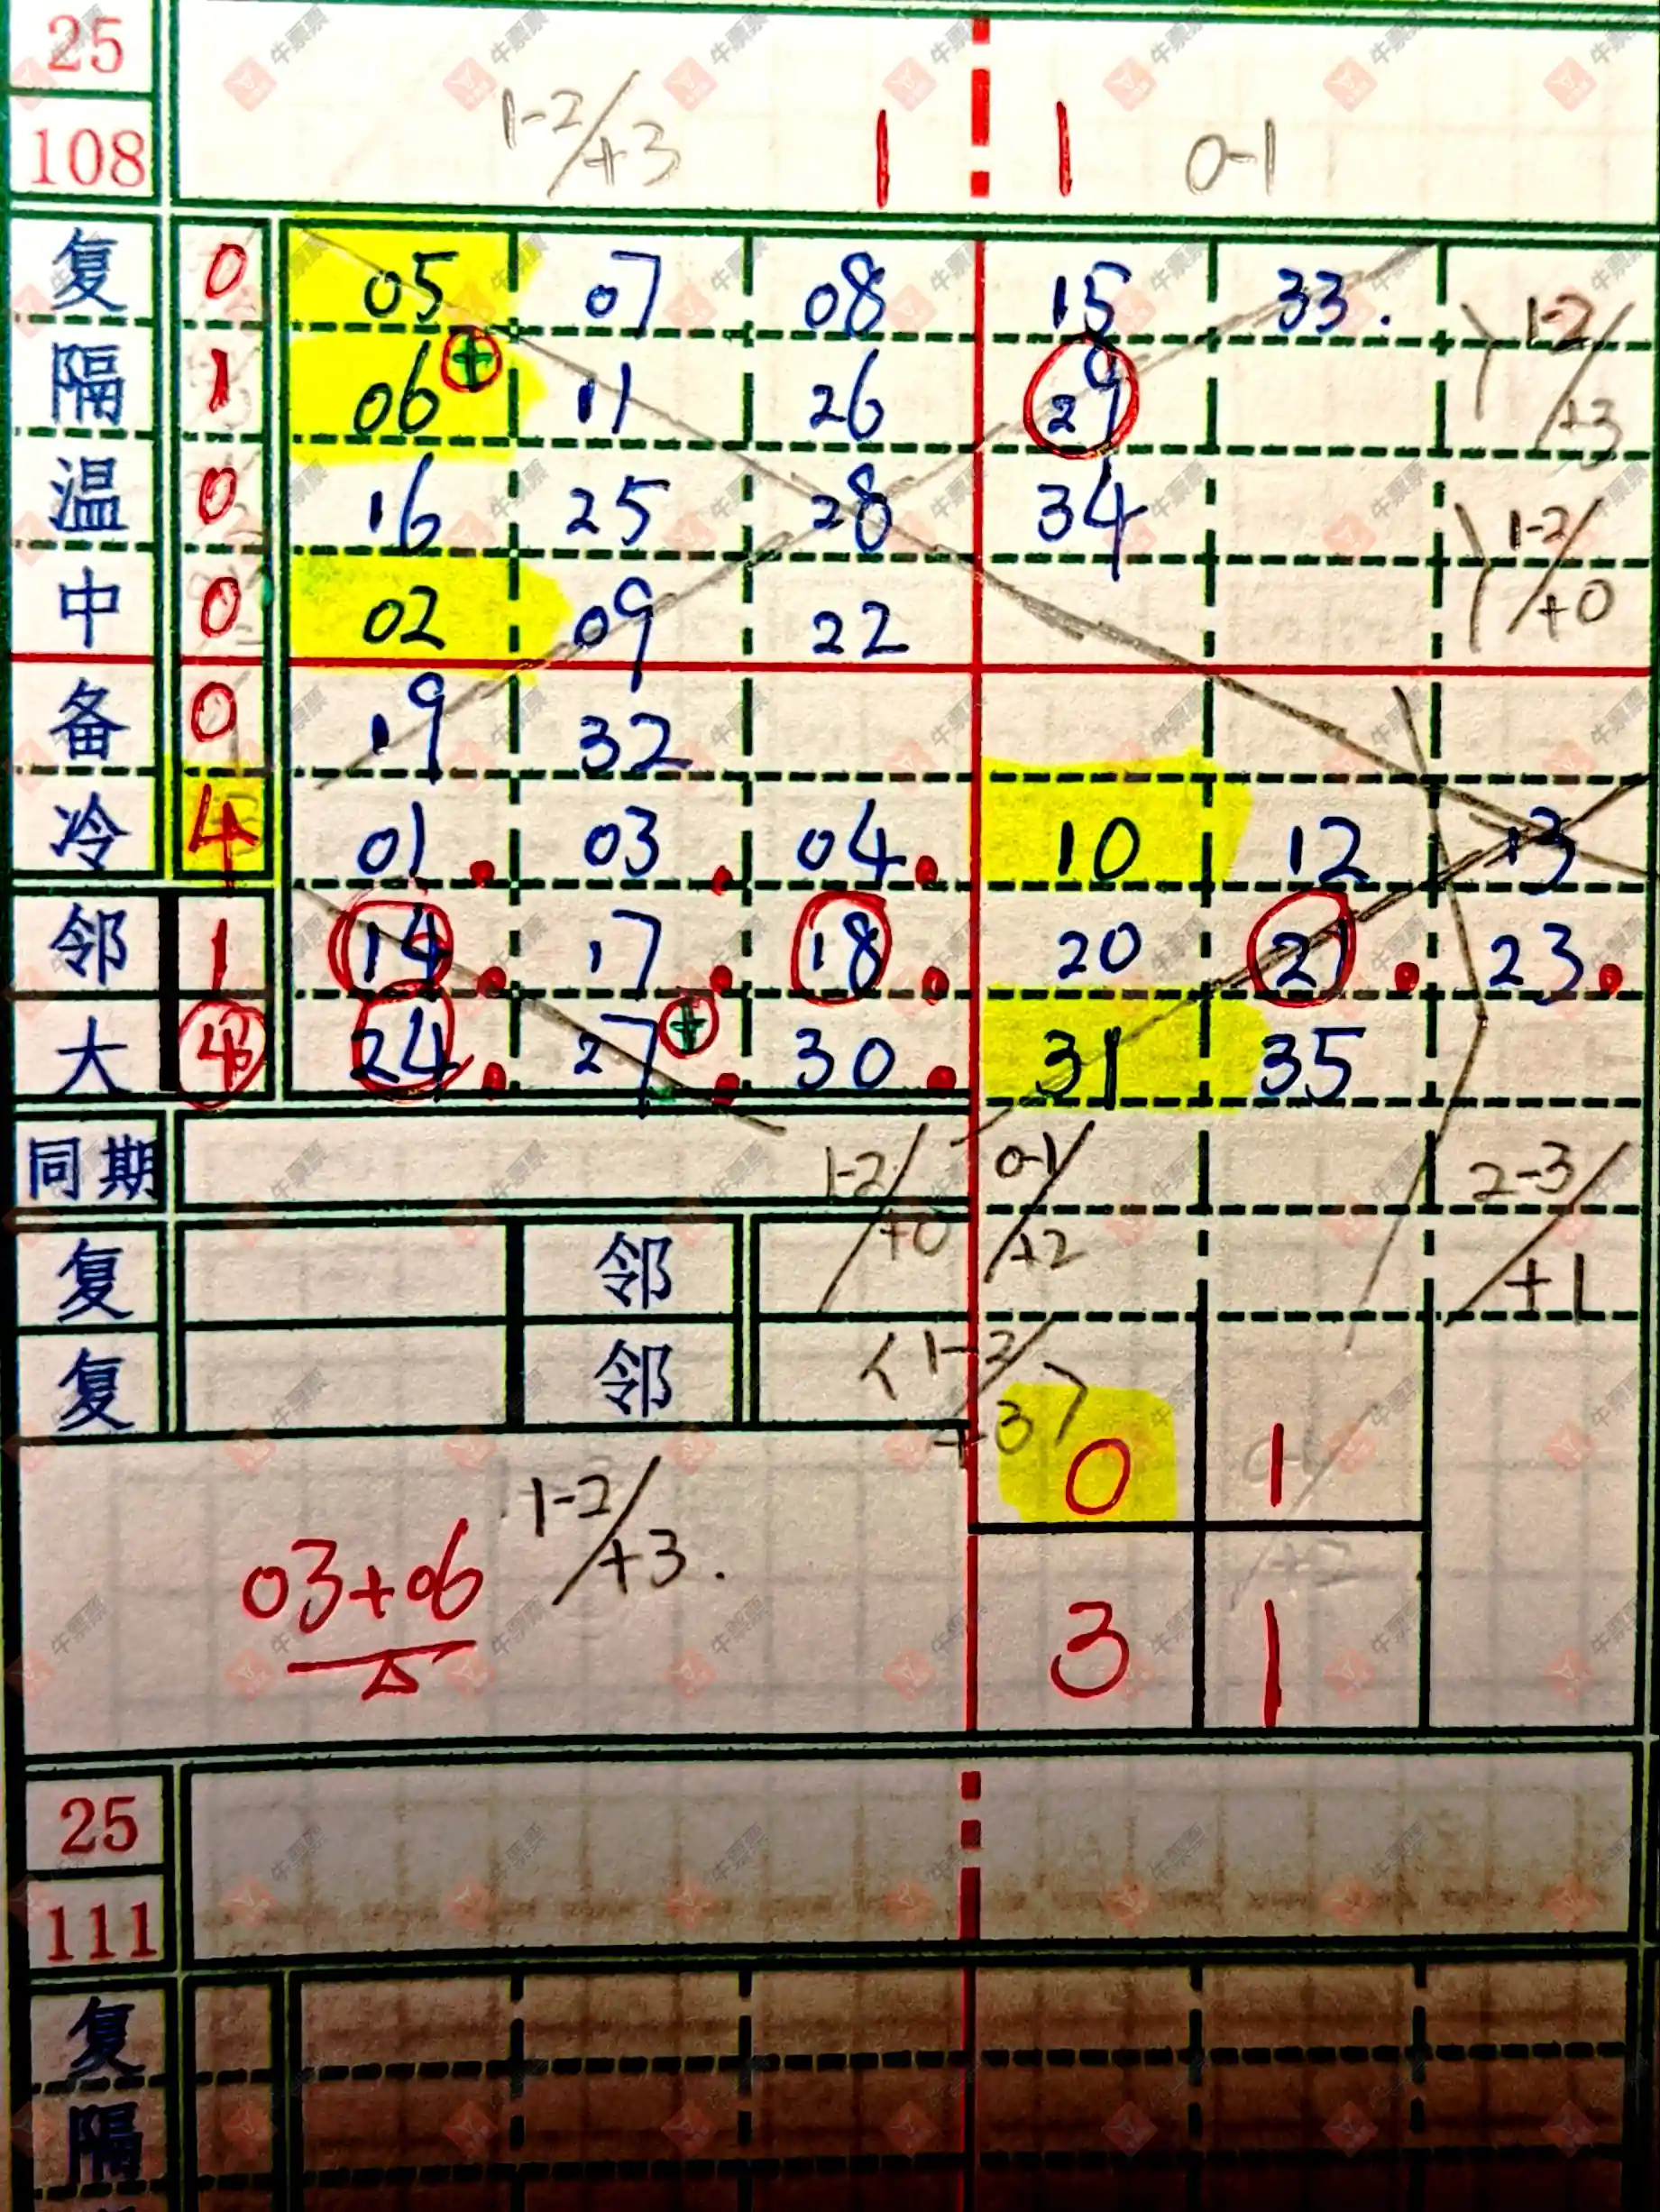 25
108 1-2/+3 1 1 0-1
复 0 05 07 08 15 33. 1-2/+3
隔 1 06 + 11 26 29
温 0 16 25 28 34 1-2/+0
中 0 02 09 22
备 0 19 32
冷 4 01 03 04 10 12 13
邻 1 14 17 18 20 21 23
大 24 27 + 30 31 35
同期 1-2/+0 0-1/+2 2-3/+1
复 邻
复 邻
0 1
03+06 1-2/+3.
3 1
25
111
复
隔